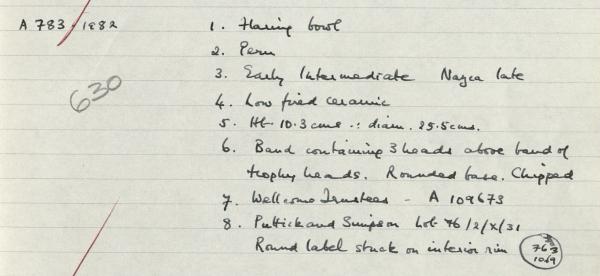 A 783.1982
1. Flaring bowl
2. Peru
3. Early Intermediate Nazca late
630
4. Low fired ceramic
5. Ht. 10.3 cms .: diam. 25.5 cms.
6. Band containing 3 heads above band of
trophy heads. Rounded base. Chipped
7. Wellcome Trustees - A 109673
8. Puttick and Simpson Lot 76/2/X/31
Round label stuck on interior rim
763
1069